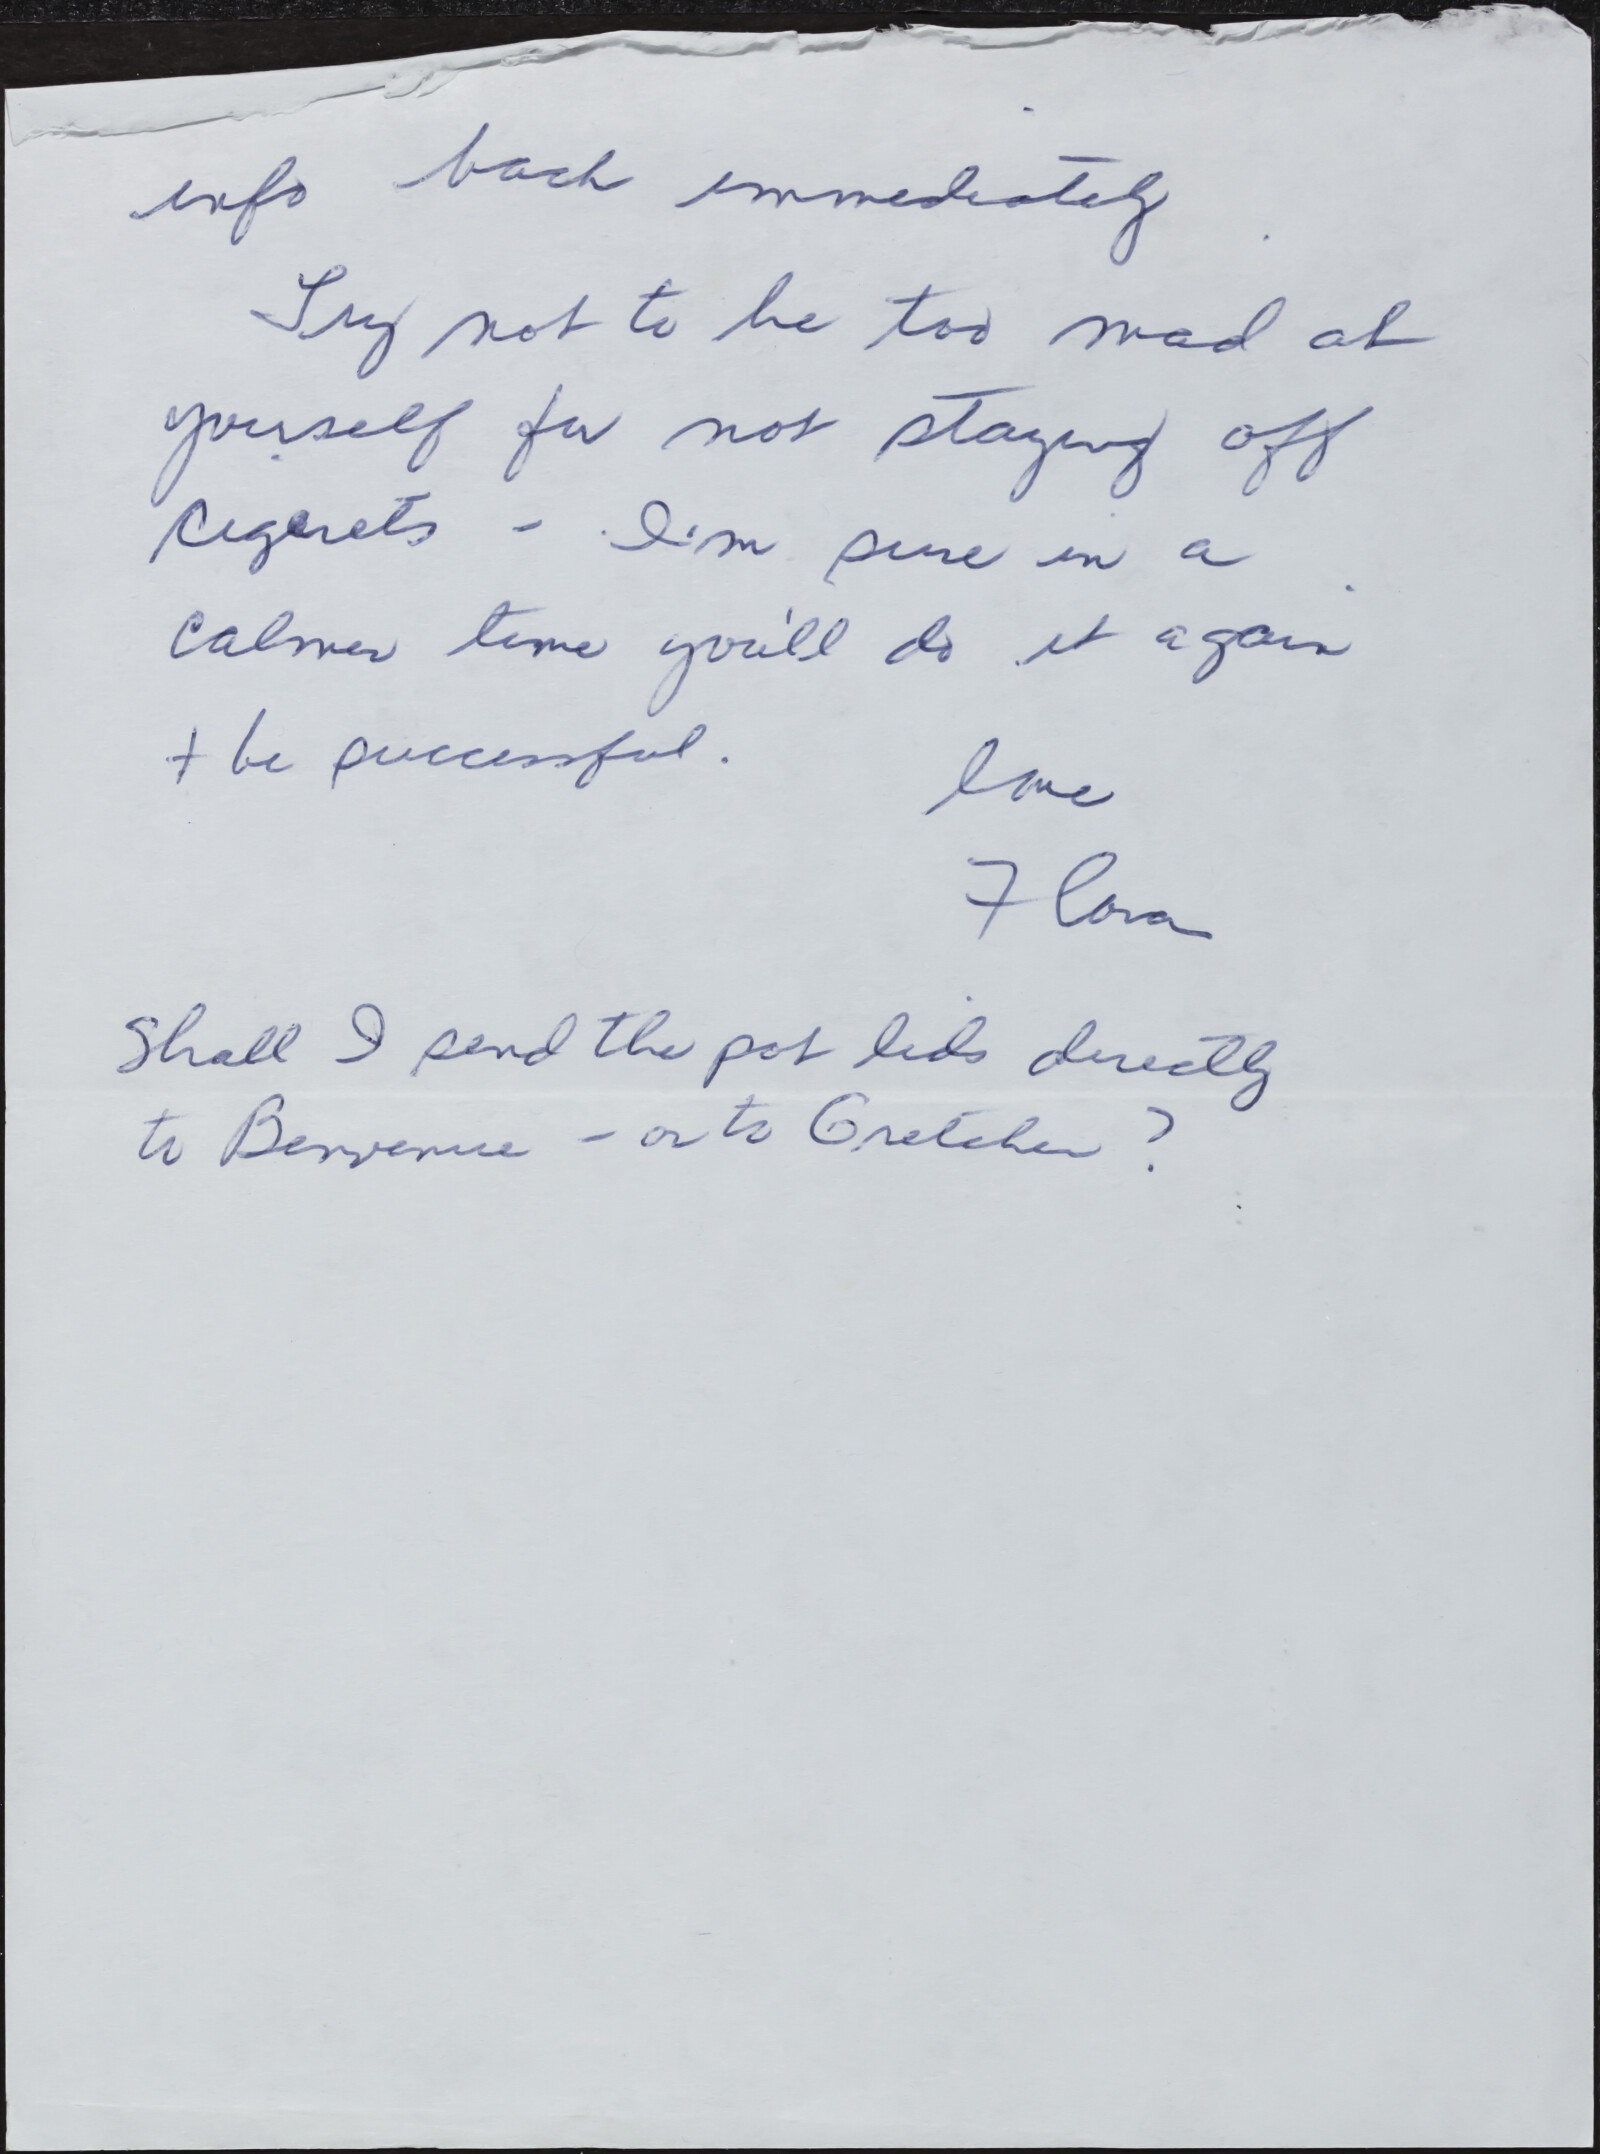 info back immediately
Try not to be too mad at
yourself for not staying off
cigerets - I'm sure in a
calmer time you'll do it again
+ be successful.
love
Flora
Shall I send the pot lids directly
to Benvenue - or to Gretchen?